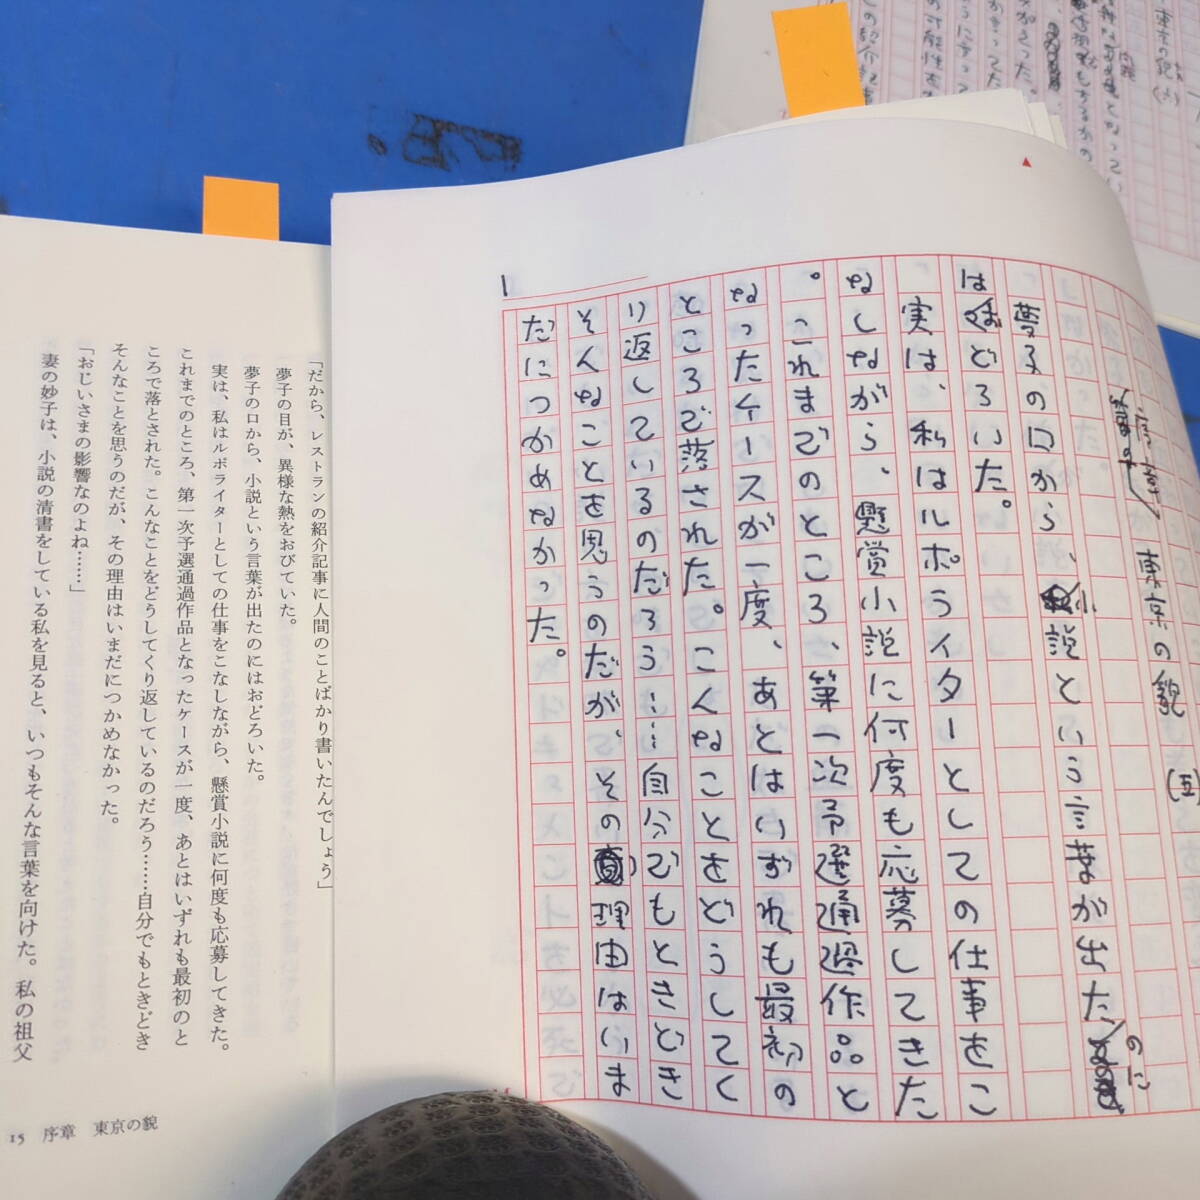 序章 東京の貌 (五)
夢子の口から、小説という言葉が出たのに
はおどろいた。
実は、私はルポライターとしての仕事をこ
なしながら、懸賞小説に何度も応募してきた
。これまでのところ、第一次予選通過作品と
なったケースが一度、あとはいずれも最初の
ところで落された。こんなことをどうしてく
り返しているのだろう……自分でもときどき
そんなことを思うのだが、その理由はいま
だにつかめなかった。
「だから、レストランの紹介記事に人間のことばかり書いたんでしょう」
夢子の目が、異様な熱をおびていた。
夢子の口から、小説という言葉が出たのにはおどろいた。
実は、私はルポライターとしての仕事をこなしながら、懸賞小説に何度も応募してきた。
これまでのところ、第一次予選通過作品となったケースが一度、あとはいずれも最初のと
ころで落とされた。こんなことをどうしてくり返しているのだろう……自分でもときどき
そんなことを思うのだが、その理由はいまだにつかめなかった。
「おじいさまの影響なのよね……」
妻の妙子は、小説の清書をしている私を見ると、いつもそんな言葉を向けた。私の祖父
15 序章 東京の貌